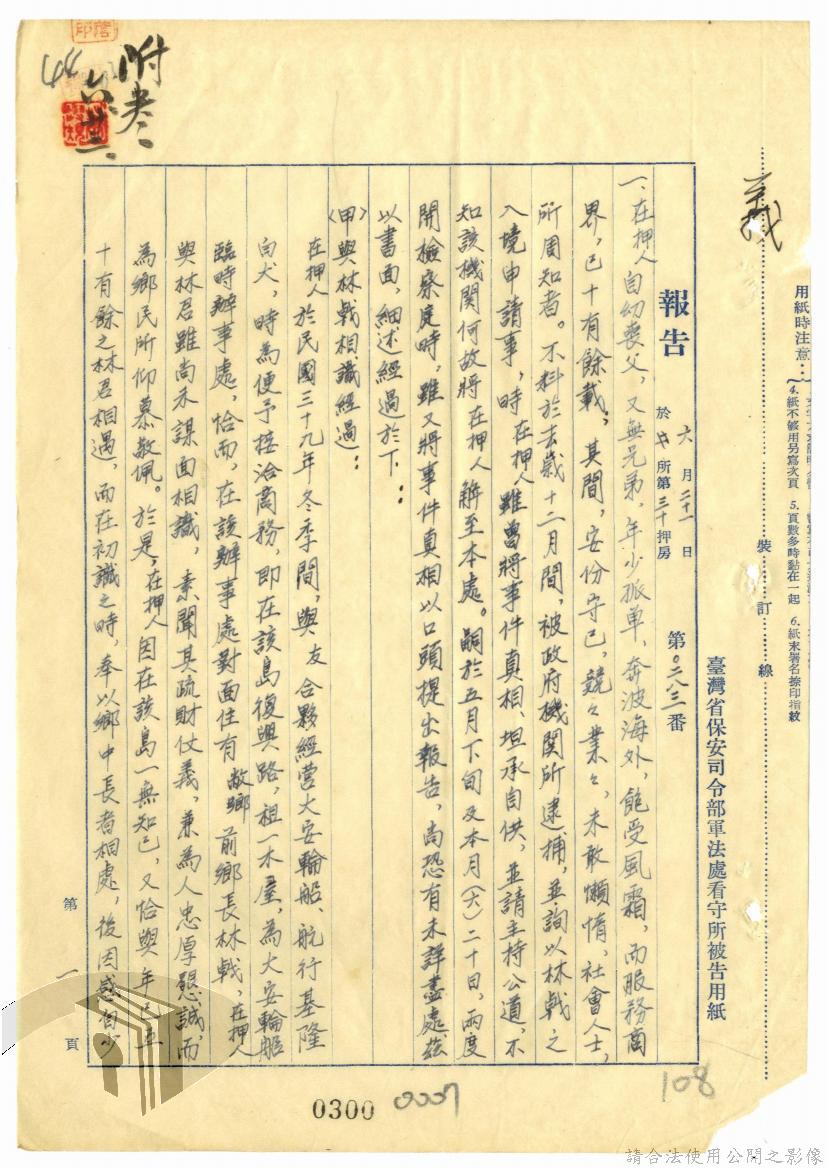 用紙時注意：
4.紙不够用另寫次頁 5.頁數多時黏在一起 6.紙末署名捺印指紋
義
裝訂線
臺灣省保安司令部軍法處看守所被告用紙
報告 於 六月二十一日 所第三十押房 第0二八三番
一、在押人自幼喪父，又無兄弟，年少孤單，奔波海外，飽受風霜，而服務商
界，已十有餘載；其間，安份守己，競々業々，未敢懶惰，社會人士，
所周知者。不料於去歲十二月間，被政府機關所逮捕，並詢以林戟之
入境申請事，時在押人雖曾將事件真相、坦承自供，並請主持公道，不
知該機關何故將在押人解至本處。嗣於五月下旬及本月(六)二十日，兩度
開檢察庭時，雖又將事件真相以口頭提出報告，尚恐有未詳盡處茲
以書面，細述經過於下：
〈甲〉與林戟相識經過：
在押人於民國三十九年冬季間，與友合夥經營大安輪船、航行基隆
白犬，時為便予接洽商務，即在該島復興路，祖一木屋，為大安輪船
臨時辦事處，恰而，在該辦事處對面住有敝鄉前鄉長林戟，在押人
與林君雖尚未謀面相識，素聞其疏財仗義，兼為人忠厚懇誠，而
為鄉民所仰慕敬佩。於是，在押人因在該島一無知己，又恰與年已五
十有餘之林君相遇，而在初識之時，奉以鄉中長者相處，後因感自少
第一頁
附卷
六廿一
48
108
0300 0007
請合法使用公開之影像